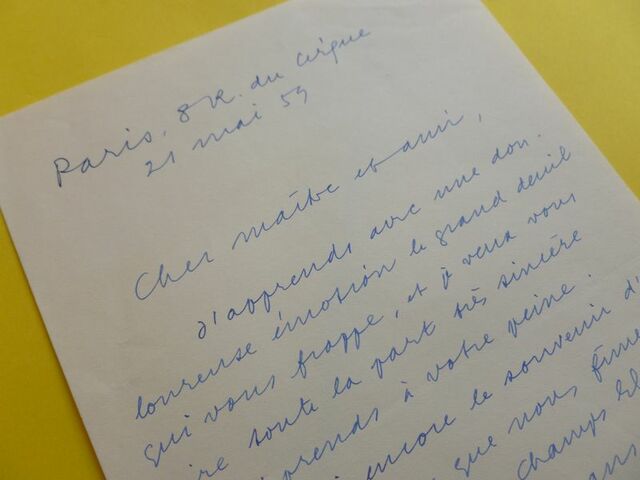 Paris, 8 R. du Cirque
21 mai 59
Cher maître et ami,
J'apprends avec une dou-
loureuse émotion le grand deuil
qui vous frappe, et je veux vous
ire toute la part très sincère
prends à votre peine.
encore le souvenir d'
que nous fîmes
champs El
ans